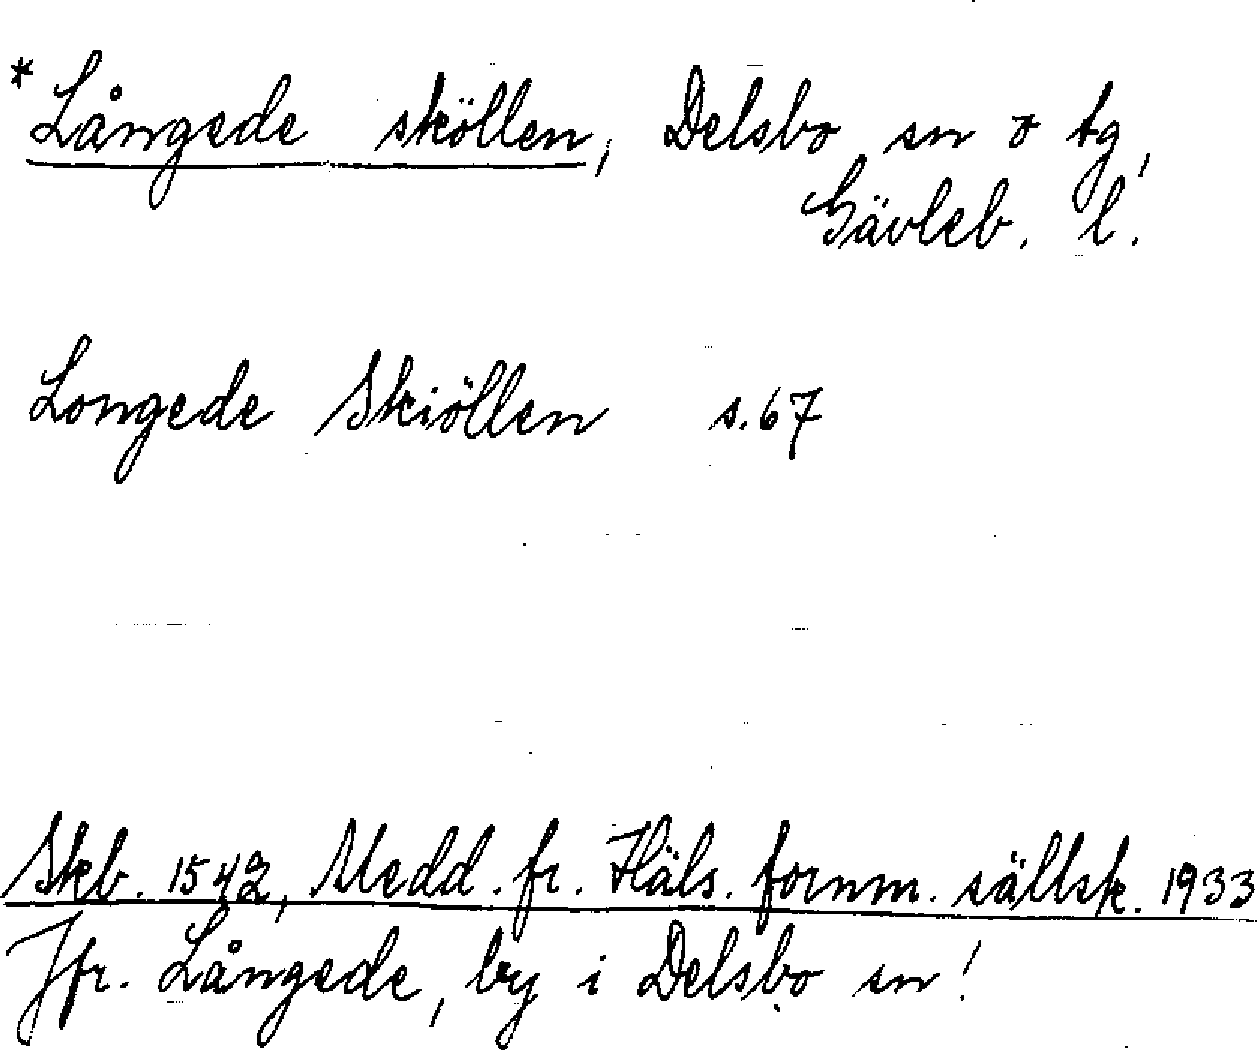 *Långede sköllen, Delsbo sn o tg,
Gävleb. l.
Longede Skiöllen s. 67
Skb. 1542, Medd. fr. Häls. fornm. sällsk. 1933
Jfr. Långede, by i Delsbo sn!